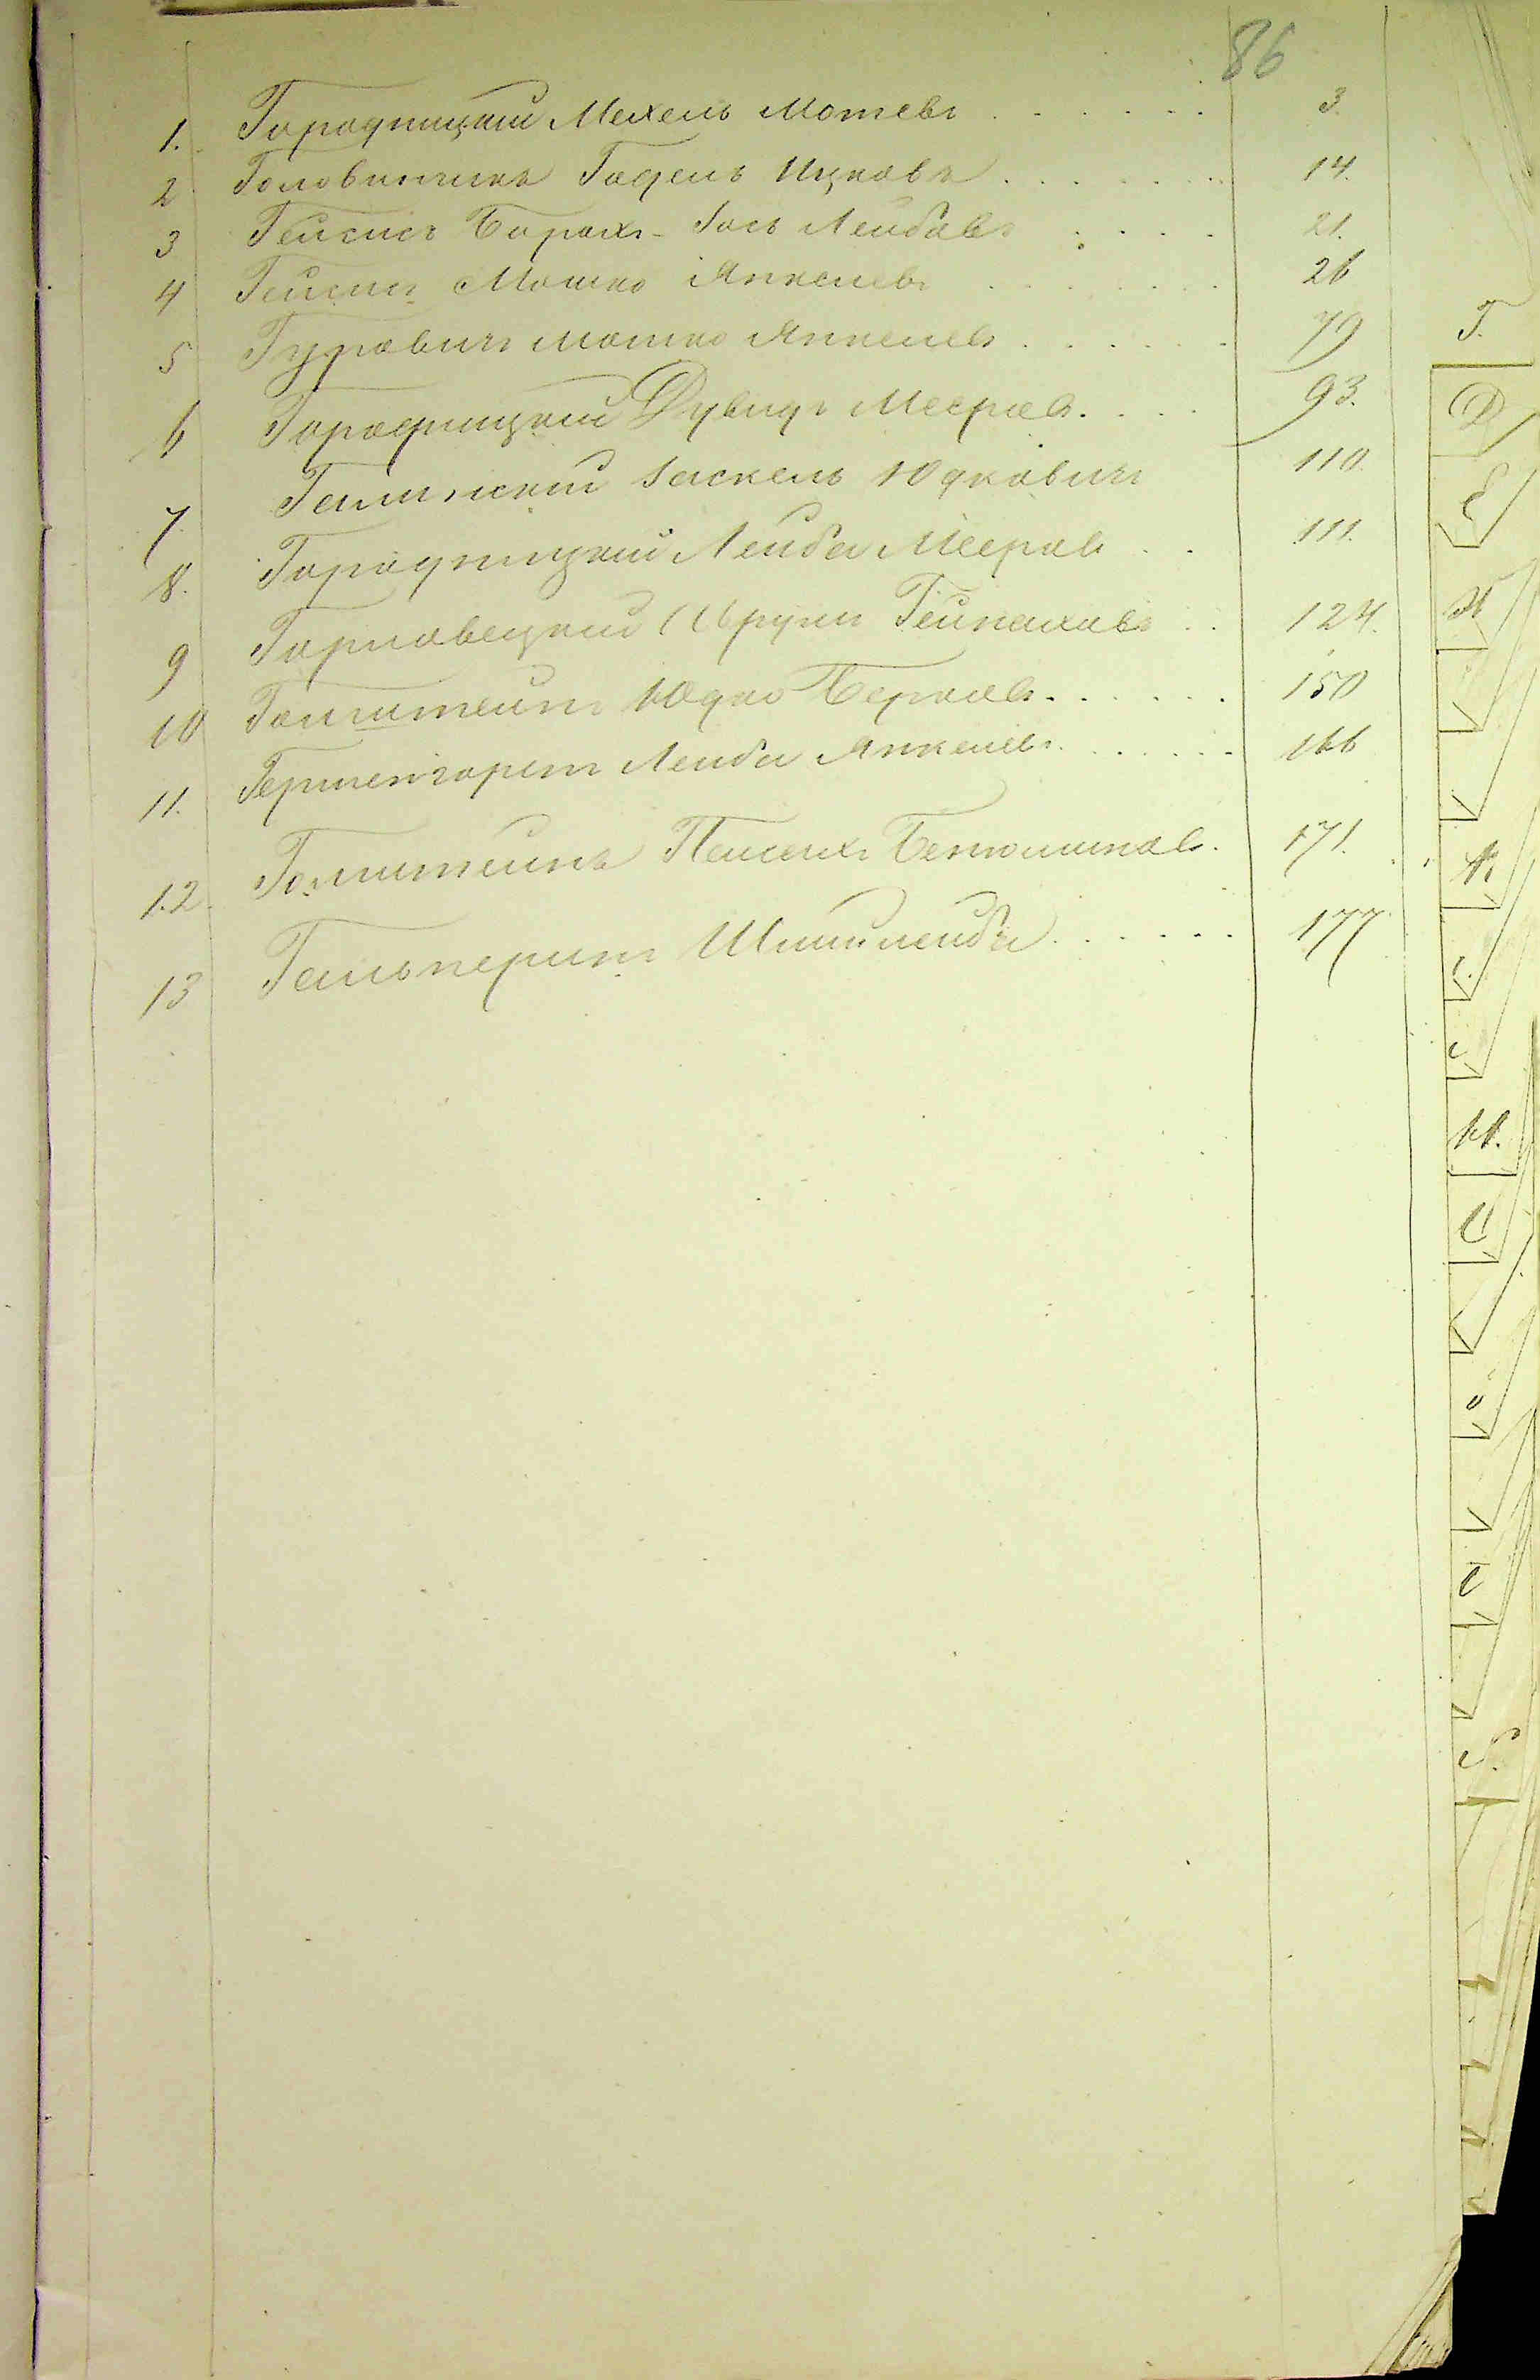 86
1. Городницкий Мехель Мотевъ . . . . . . 3.
2 Головинчикъ Годель Ицковъ . . . . . . 14.
3 Гейсисъ Борохъ-Іось Лейбовъ . . . . 21.
4 Гейсисъ Мошко Янкелевъ . . . . . . 26
5 Гуровичъ Мошко Янкелевъ . . . . . . 79
6 Городницкий Дувидъ Мееровъ . . . . 93.
7 Галинский Хаскель Юдковичъ 110.
8. Городницкий Лейба Мееровъ . . 111.
9 Гориовецкий Сруль Гейнаховъ . . 124.
10 Гольштейнъ Юдко Берковъ . . . . . . 150
11. Лейба Янкелевъ . . . . . . 166
12. Гольштейнъ Пейсахъ Бенюминовъ. 171.
13 Гальперинъ Шмилейба . . . . . . 177.
Г.
Д
Е
Ж
К
М.
С